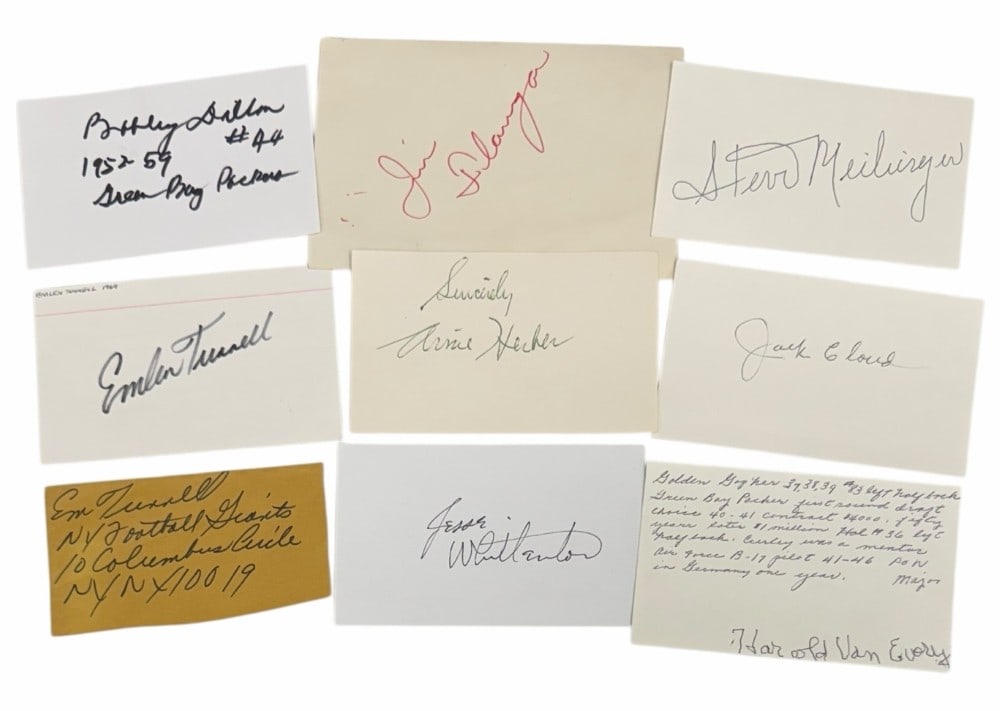 Bobby Dillon
#44
1952-59
Green Bay Packers
Jim
Steve Meilinger
EMLEN TUNNELL 1969
Emlen Tunnell
Sincerely
Arnie Herber
Jack Cloud
Em Tunnell
NY Football Giants
10 Columbus Circle
NY NY 10019
Jesse
Whittenton
Golden Gopher 37,38,39 #83 left half back
Green Bay Packer first round draft
choice 40-41 contract $4000. fifty
years later $1 million Hal #36 left
half back. Curley was a mentor
Air Force B-17 pilot 41-46 POW
in Germany one year. Major
Harold Van Every